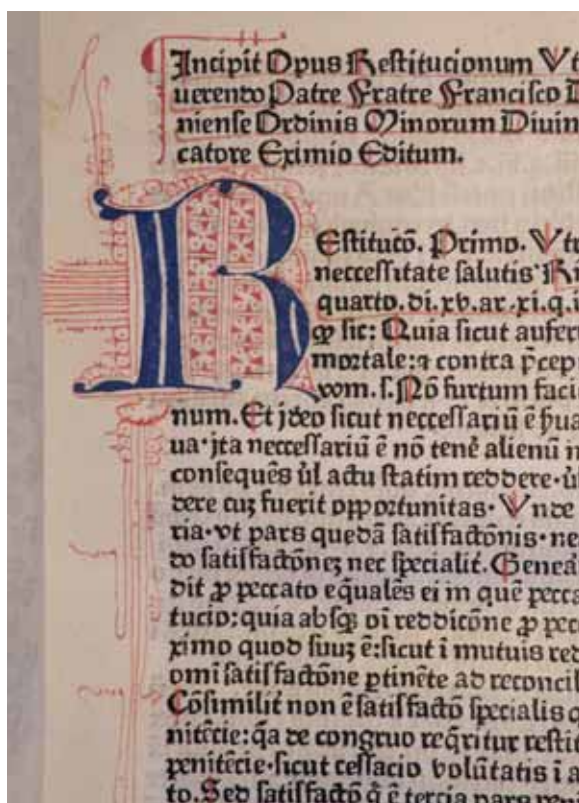 Incipit Opus Restitucionum Vt
uerendo Patre Fratre Francisco D
niense Ordinis Minorum Diuin
catore Eximio Editum.
REstitucō. Primo. Vtr
neccessitate salutis Ri
quarto.di.xv.ar.xi.q.i
ꝙ sic: Quia sicut aufer
mortale:⁊ contra p̄cep
xom.f. Nō furtum faci
num. Et jdeo sicut neccessariū ē
ua·jta neccessariū ē nō tenē alienū i
consequēs ūl actu statim reddere·ū
dere cuȝ fuerit opportunitas· Vnde
ria·vt pars quedā satisfactōnis·ne
do satisfactōneȝ nec specialiť. Geneā
dit ꝓ peccato equalēs ei in quē pecca
tucio: quia absqȝ oī reddicōne ꝓ pec
ximo quod suuȝ ē: sicut ī mutuis red
omī satisfactōne ꝑtinēte ad reconcil
Cōsimiliť non ē satisfactō specialis
nitēcie: q̄a de congruo reqritur restit
penitēcie·sicut cessacio volūtatis ī a
to. Sed satisfactō q̄ ē tercia pars